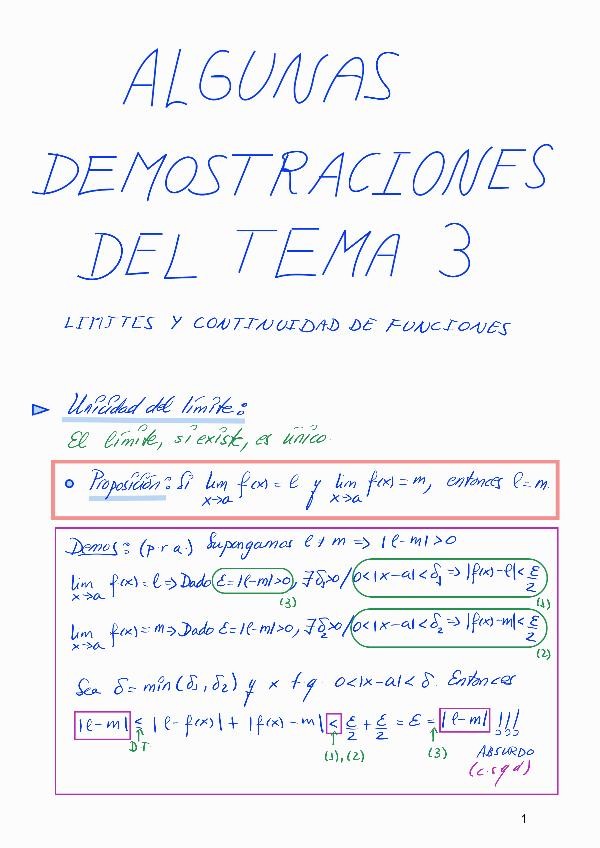 ALGUNAS
DEMOSTRACIONES
DEL TEMA 3
LIMITES Y CONTINUIDAD DE FUNCIONES
Unicidad del límite:
El límite, si existe, es único.
Proposición: Si lim f(x) = l y lim f(x) = m, entonces l = m.
x→a x→a
Demos: (p r a.) Supongamos l ≠ m ⇒ |l-m| > 0
lim f(x) = l ⇒ Dado ε = |l-m| > 0, ∃ δ₁ > 0 / 0 < |x-a| < δ₁ ⇒ |f(x)-l| < ε/2
x→a (3) (1)
lim f(x) = m ⇒ Dado ε = |l-m| > 0, ∃ δ₂ > 0 / 0 < |x-a| < δ₂ ⇒ |f(x)-m| < ε/2
x→a (2)
Sea δ = min(δ₁, δ₂) y x t q 0 < |x-a| < δ. Entonces
|l-m| ≤ |l-f(x)| + |f(x)-m| < ε/2 + ε/2 = ε = |l-m| !!!
DT (1), (2) (3) ABSURDO
(c.s q d)
1